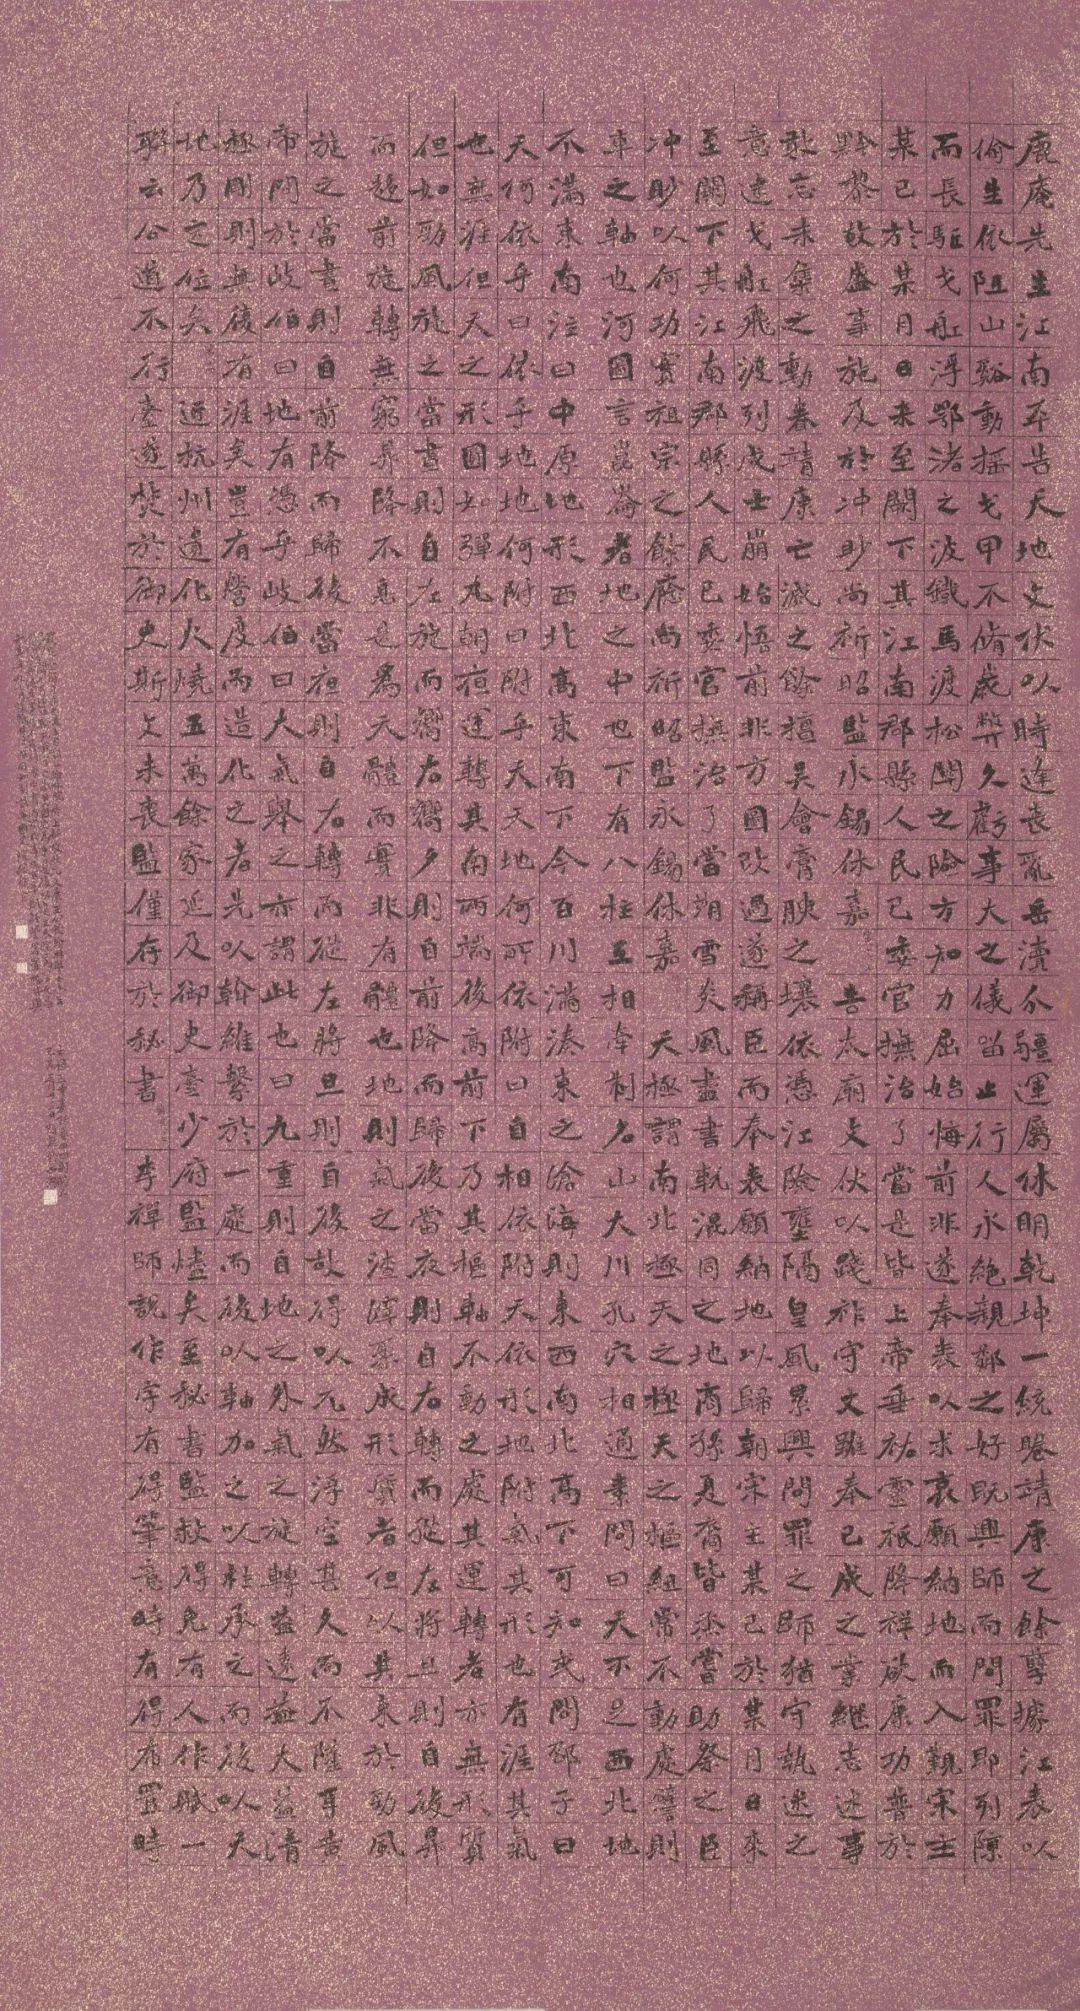 鹿庵先生江南平告天地文伏以時逢喪亂岳瀆分疆運屬休明乾坤一統睠靖康之餘孽據江表以
偷生依阻山谿動搖戈甲不脩歲弊久虧事大之儀留止行人永絕親鄰之好既興師而問罪即列隙
而長驅戈舡浮鄂渚之波鐵馬渡松關之險方知力屈始悔前非遂奉表以求哀願納地而入覲宋主
某已於某月日来至闕下其江南郡縣人民已委官撫治了當是皆上帝垂祐靈祇降祥欲康功普於
黔黎故盛事施及於冲眇尚祈昭監永錫休嘉 告太廟文伏以踐祚守文雖奉已成之業繼志述事
敢忘未集之動眷靖康亡滅之餘擅吳會膏腴之壤依憑江險壅隔皇風累興問罪之師猶守執迷之
意逮戈舡飛渡列戍土崩始悟前非方圖改過遂稱臣而奉表願納地以歸朝宋主某已於某月日來
至闕下其江南郡縣人民已委官撫治了當朔雪炎風盡書軌混同之地商孫夏裔皆烝嘗助祭之臣
冲眇以何功實祖宗之餘廕尚祈昭監永錫休嘉 天極謂南北極天之極天之樞紐常不動處譬則
車之軸也河圖言崑崙者地之中也下有八柱互相牽制名山大川孔穴相通素問曰天不足西北地
不滿東南注曰中原地形西北高東南下今百川滿湊東之滄海則東西南北高下可知或問邵子曰
天何依乎曰依乎地地何附曰附乎天天地何所依附曰自相依附天依形地附氣其形也有涯其氣
也無涯但天之形圓如彈丸朝夜運轉其南兩端後高前下乃其樞軸不動之處其運轉者亦無形質
但如勁風旋之當晝則自左旋而嚮右嚮夕則自前降而歸後當夜則自右轉而從左將旦則自後昇
而趍前旋轉無窮昇降不息是爲天體而實非有體也地則氣之渣滓聚成形質者但以其束於勁風
旋之當晝則自前降而歸後當夜則自右轉而從左將旦則自後故得以兀然浮空甚久而不墜耳黃
帝問於岐伯曰地有憑乎岐伯曰大氣舉之亦謂此也曰九重則自地之外氣之旋轉益遠益大益清
極剛則無復有涯矣豈有營度而造化之者先以斡維繫於一處而後以軸加之以柱承之而後以天
地乃定位矣 近杭州遺化火燒五萬餘家延及御史臺少府監燼矣至秘書監救得免有人作賦一
聯云公道不行臺遂焚於御史斯文未喪監僅存於秘書 李禪師說作字有得筆意時有得布置時